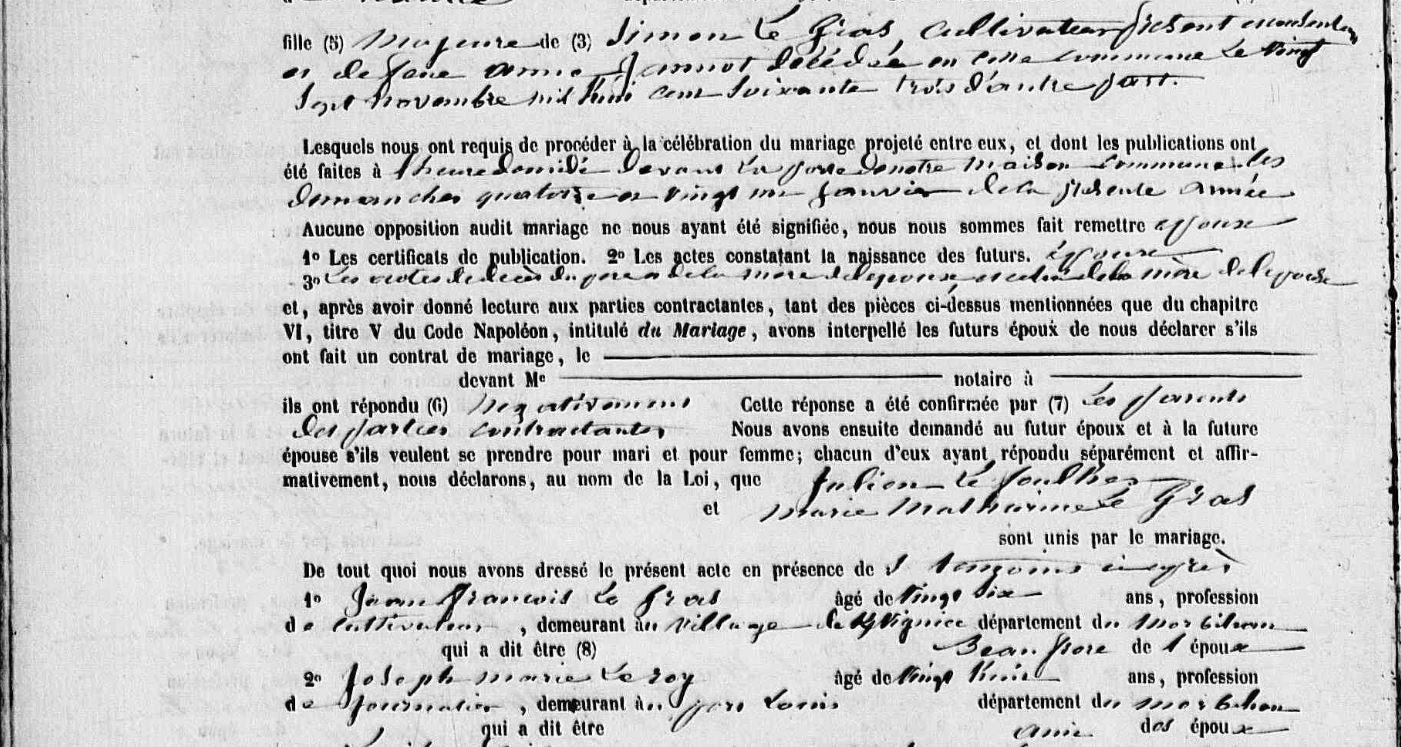 fille (5) Majeure de (3) Simon Le Gras, cultivateur présent consentant
et de Jeanne Jannot décédée en cette commune le vingt
sept novembre mil huit cent soixante trois d'autre part.
Lesquels nous ont requis de procéder à la célébration du mariage projeté entre eux, et dont les publications ont
été faites à l'heure de midi devant la porte de notre maison commune les
dimanches quatorze et vingt un janvier de la présente année
Aucune opposition audit mariage ne nous ayant été signifiée, nous nous sommes fait remettre
1º Les certificats de publication. 2º Les actes constatant la naissance des futurs. époux
3º Les actes de décès du père et de la mère de l'époux, et celui de la mère de l'épouse
et, après avoir donné lecture aux parties contractantes, tant des pièces ci-dessus mentionnées que du chapitre
VI, titre V du Code Napoléon, intitulé du Mariage, avons interpellé les futurs époux de nous déclarer s'ils
ont fait un contrat de mariage, le
devant Me notaire à
ils ont répondu (6) négativement Cette réponse a été confirmée par (7) Les parents
des parties contractantes Nous avons ensuite demandé au futur époux et à la future
épouse s'ils veulent se prendre pour mari et pour femme; chacun d'eux ayant répondu séparément et affir-
mativement, nous déclarons, au nom de la Loi, que Julien Le
et Marie Mathurine Le Gras
sont unis par le mariage.
De tout quoi nous avons dressé le présent acte en présence de
1º Jean François Le Gras âgé de vingt six ans, profession
de cultivateur, demeurant au village de département du Morbihan
qui a dit être (8) Beau frère de l'époux
2º Joseph Marie Le Roy âgé de vingt huit ans, profession
de journalier, demeurant à Port Louis département du Morbihan
qui a dit être ami des époux